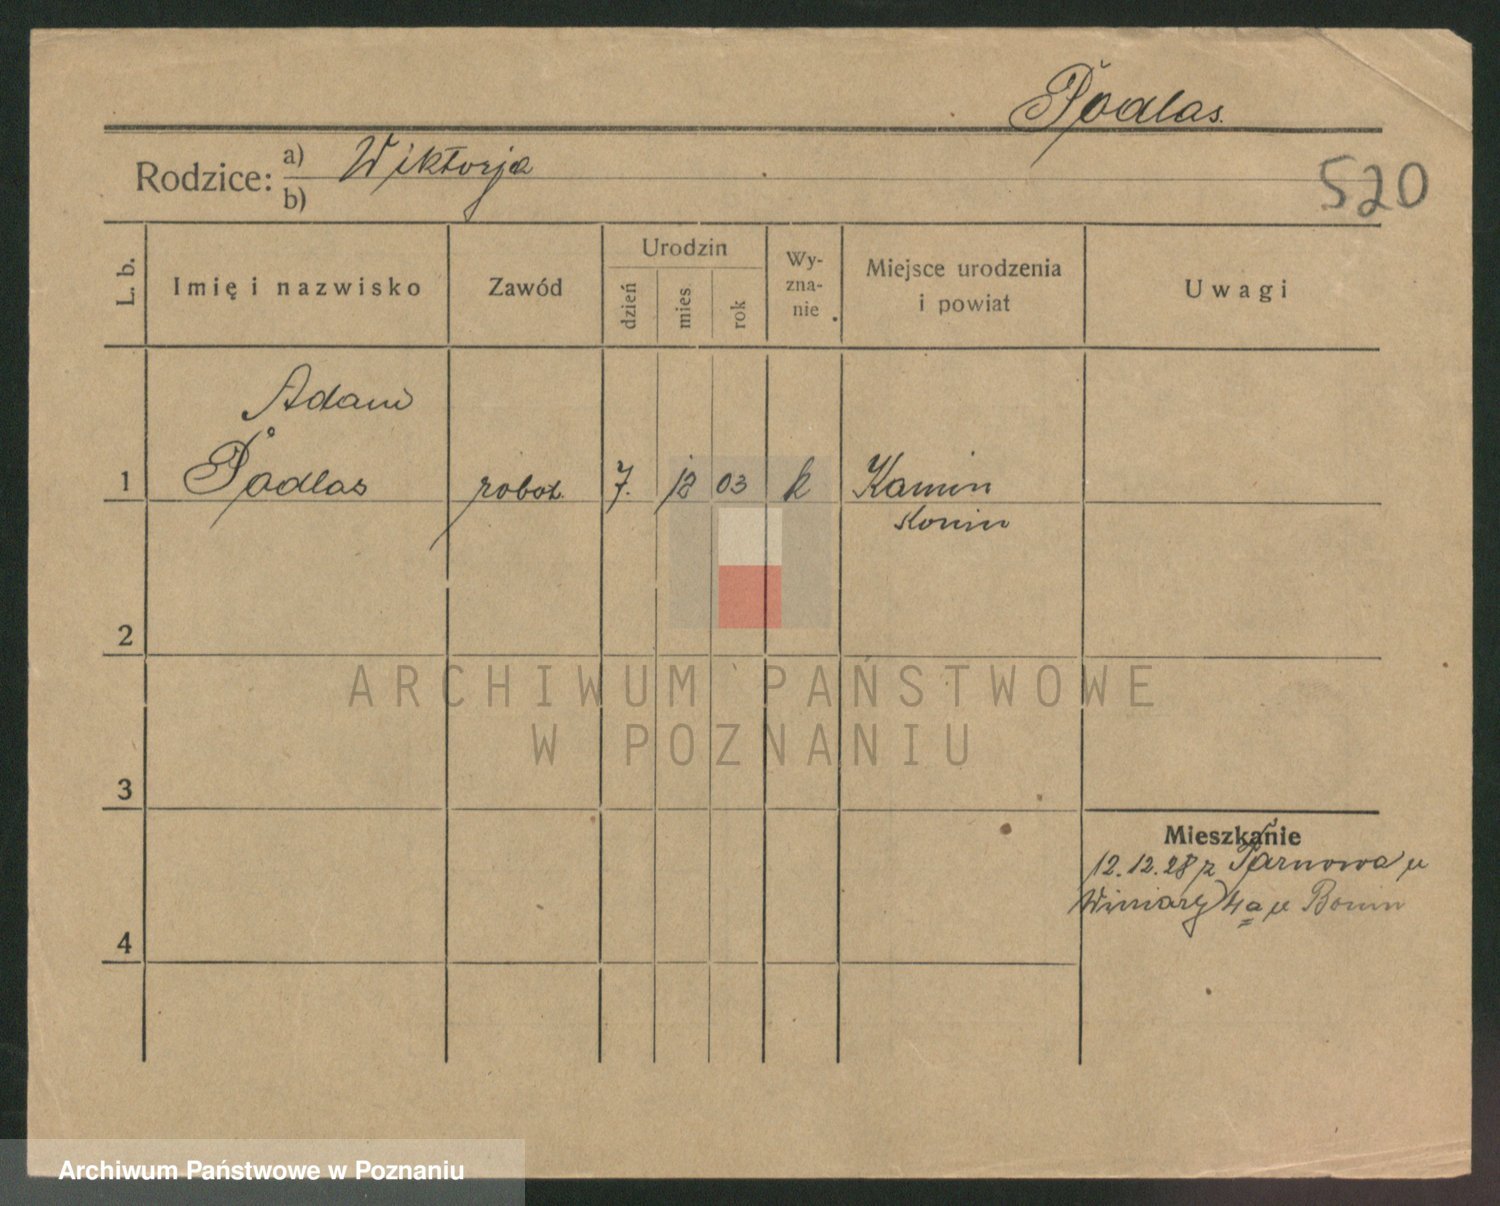 Podlas.
Rodzice: a) Wiktorja
b)
520
L. b.
Imię i nazwisko
Zawód
Urodzin
dzień
mies
rok
Wy-
zna-
nie
Miejsce urodzenia
i powiat
Uwagi
Adam
1 Podlas robot. 7. 12 03 k Kamin
Konin
2
3
4
Mieszkanie
12.12.28 z Tarnowa u
Winiary 4a u Bonin
ARCHIWUM PAŃSTWOWE
W POZNANIU
Archiwum Państwowe w Poznaniu